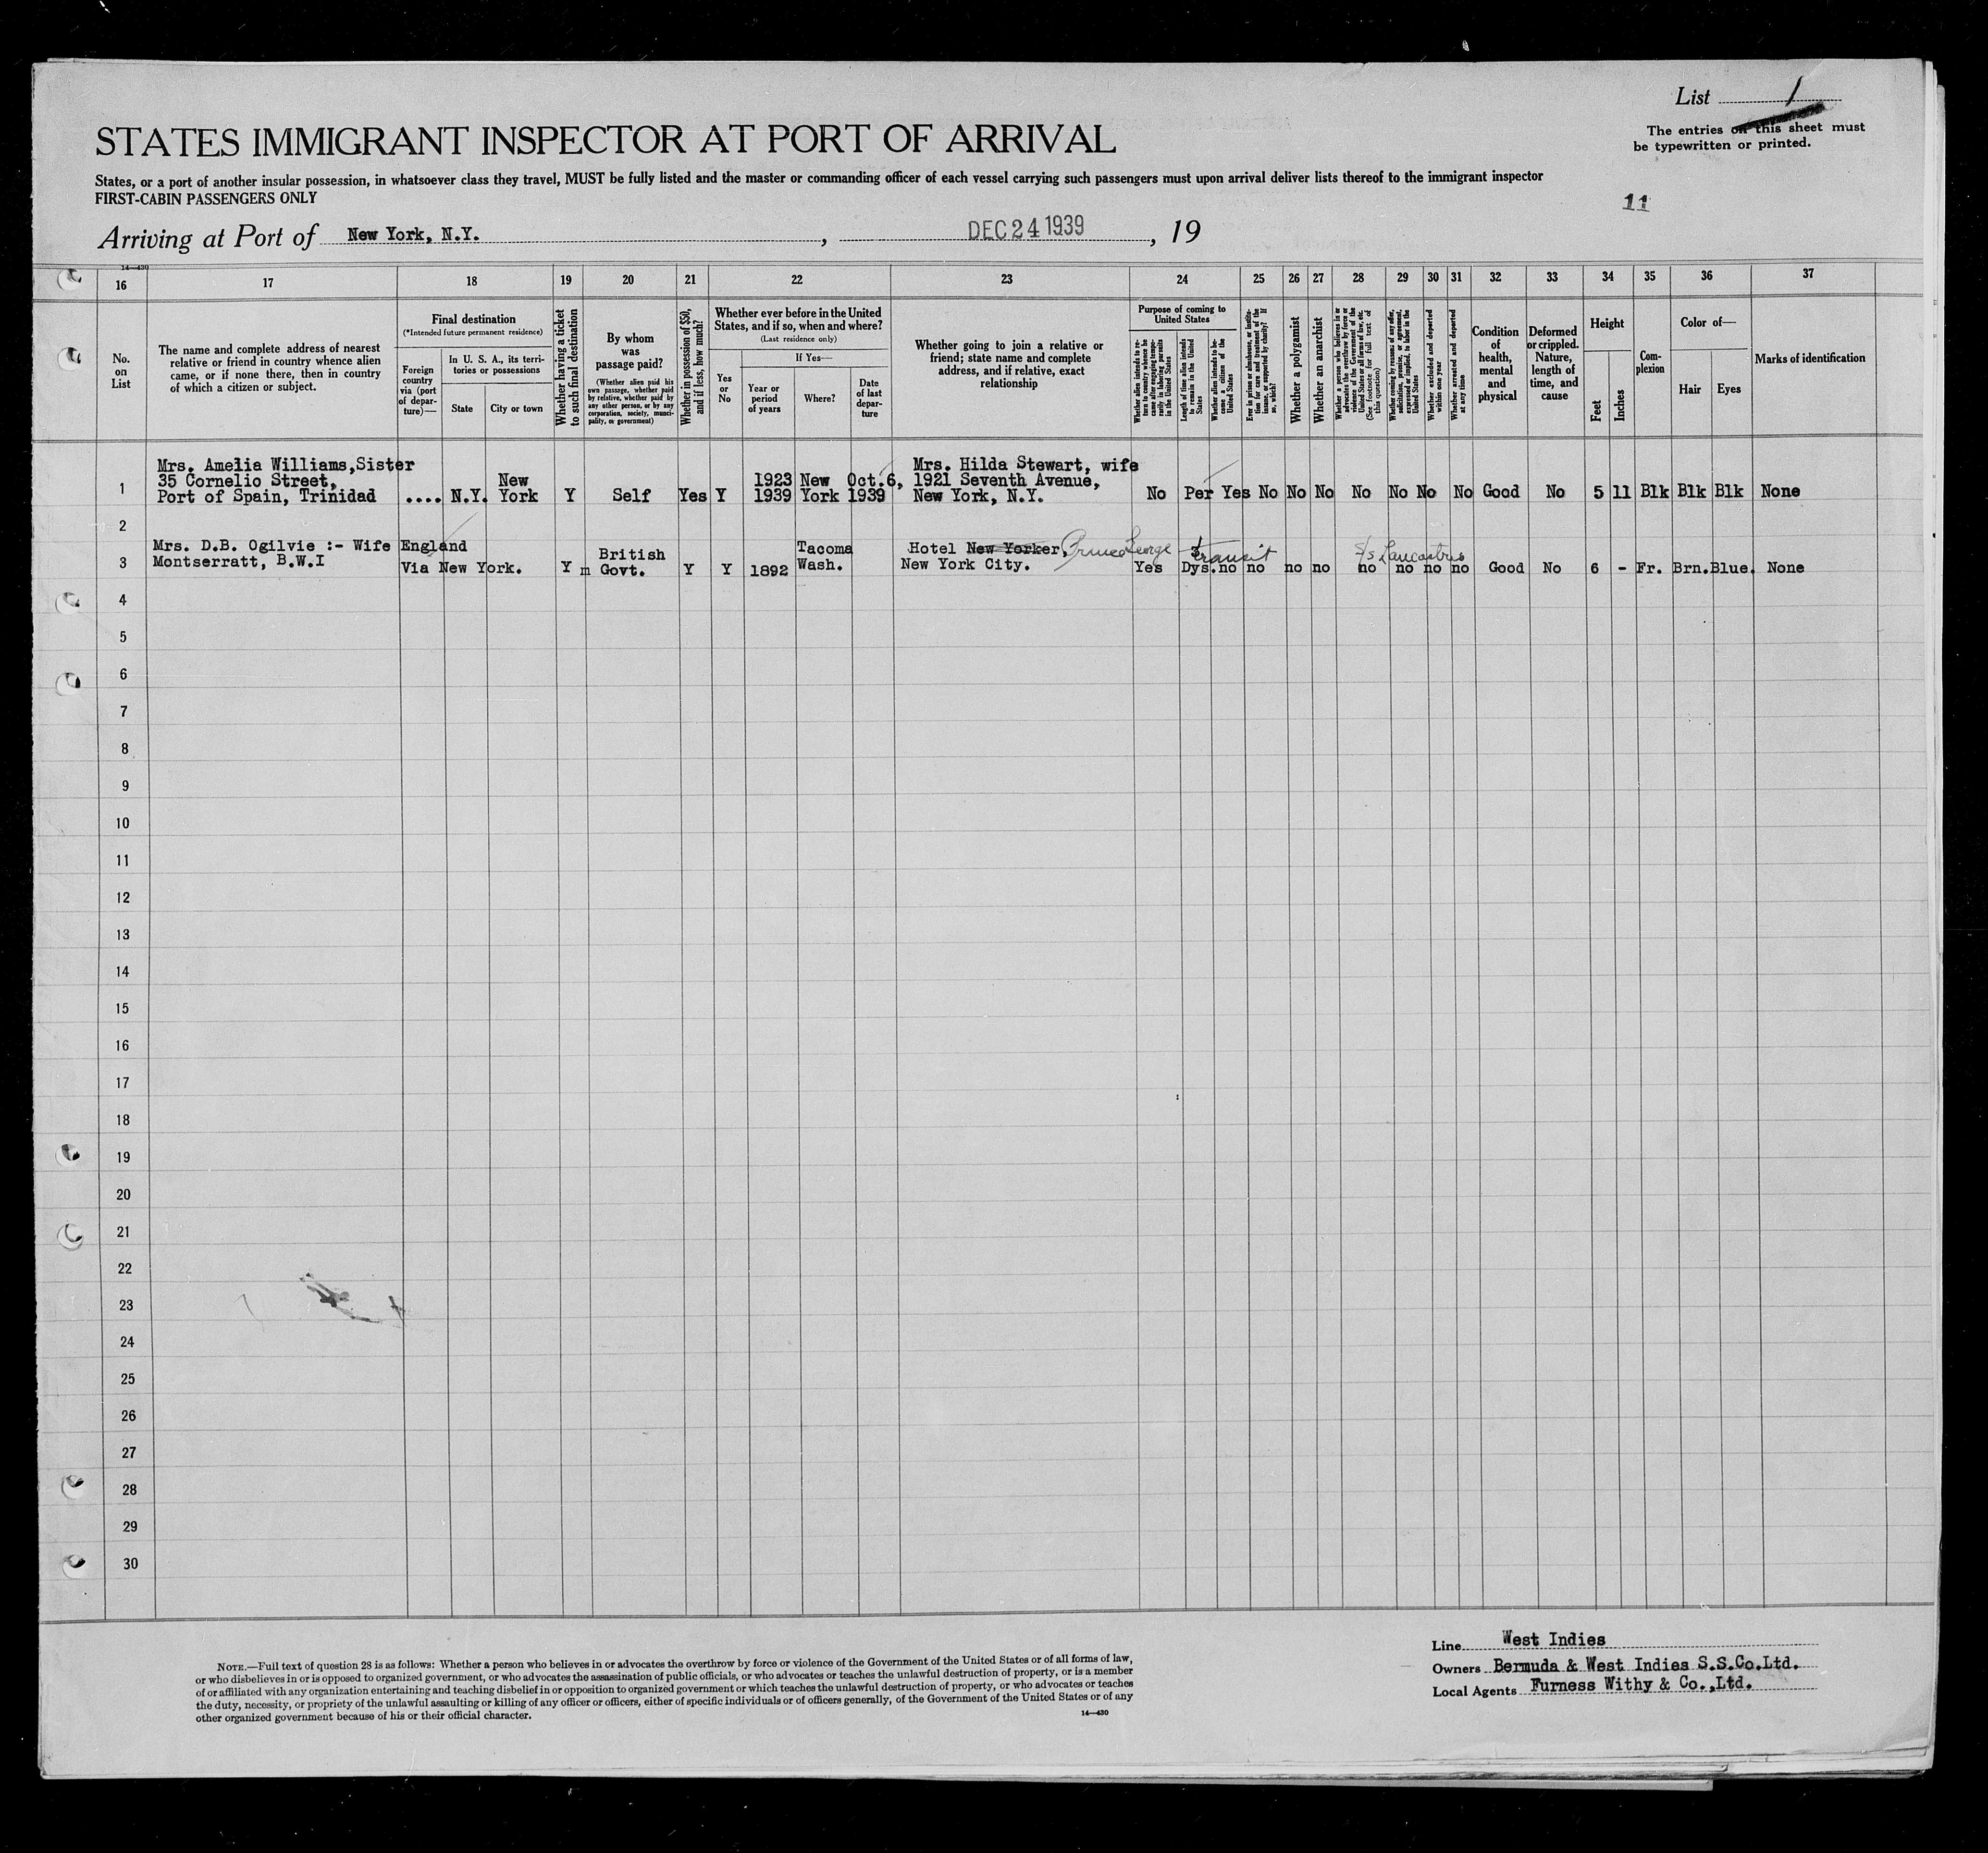 List 1
The entries on this sheet must
be typewritten or printed.
STATES IMMIGRANT INSPECTOR AT PORT OF ARRIVAL
States, or a port of another insular possession, in whatsoever class they travel, MUST be fully listed and the master or commanding officer of each vessel carrying such passengers must upon arrival deliver lists thereof to the immigrant inspector
FIRST-CABIN PASSENGERS ONLY
11
Arriving at Port of New York, N.Y. , DEC 24 1939 , 19
14—430
16 17 18 19 20 21 22 23 24 25 26 27 28 29 30 31 32 33 34 35 36 37
No.
on
List
The name and complete address of nearest
relative or friend in country whence alien
came, or if none there, then in country
of which a citizen or subject.
Final destination
(*Intended future permanent residence)
Foreign
country
via (port
of depar-
ture)—
In U. S. A., its terri-
tories or possessions
State
City or town
Whether having a ticket
to such final destination
By whom
was
passage paid?
(Whether alien paid his
own passage, whether paid
by relative, whether paid by
any other person, or by any
corporation, society, munici-
pality, or government)
Whether in possession of $50,
and if less, how much?
Whether ever before in the United
States, and if so, when and where?
(Last residence only)
Yes
or
No
If Yes—
Year or
period
of years
Where?
Date
of last
depar-
ture
Whether going to join a relative or
friend; state name and complete
address, and if relative, exact
relationship
Purpose of coming to
United States
Whether alien intends to re-
turn to country whence he
came after engaging tempo-
rarily in laboring pursuits
in the United States
Length of time alien intends
to remain in the United
States
Whether alien intends to be-
come a citizen of the
United States
Ever in prison or almshouse, or institu-
tion for care and treatment of the
insane, or supported by charity? If
so, which?
Whether a polygamist
Whether an anarchist
Whether a person who believes in or
advocates the overthrow by force or
violence of the Government of the
United States or all forms of law, etc.
(See footnote for full text of
this question)
Whether coming by reasons of any offer,
solicitation, promise, or agreement,
expressed or implied, to labor in the
United States
Whether excluded and deported
within one year
Whether arrested and deported
at any time
Condition
of
health,
mental
and
physical
Deformed
or crippled.
Nature,
length of
time, and
cause
Height
Feet
Inches
Com-
plexion
Color of—
Hair
Eyes
Marks of identification
Mrs. Amelia Williams,Sister
35 Cornelio Street,
Port of Spain, Trinidad
1 .... N.Y. New
York Y Self Yes Y 1923
1939 New
York Oct.6,
1939 Mrs. Hilda Stewart, wife
1921 Seventh Avenue,
New York, N.Y. No Per Yes No No No No No No No Good No 5 11 Blk Blk Blk None
2
Mrs. D.B. Ogilvie :- Wife
Montserratt, B.W.I
3 England
Via New York. Y m British
Govt. Y Y 1892 Tacoma
Wash. Hotel New Yorker, Prince George
New York City. Yes Dys. transit no no no no S/S Lancastria no no no no Good No 6 - Fr. Brn. Blue. None
4
5
6
7
8
9
10
11
12
13
14
15
16
17
18
19
20
21
22
23
24
25
26
27
28
29
30
NOTE.—Full text of question 28 is as follows: Whether a person who believes in or advocates the overthrow by force or violence of the Government of the United States or of all forms of law,
or who disbelieves in or is opposed to organized government, or who advocates the assassination of public officials, or who advocates or teaches the unlawful destruction of property, or is a member
of or affiliated with any organization entertaining and teaching disbelief in or opposition to organized government or which teaches the unlawful destruction of property, or who advocates or teaches
the duty, necessity, or propriety of the unlawful assaulting or killing of any officer or officers, either of specific individuals or of officers generally, of the Government of the United States or of any
other organized government because of his or their official character.
14—430
Line West Indies
Owners Bermuda & West Indies S.S.Co.Ltd.
Local Agents Furness Withy & Co.,Ltd.